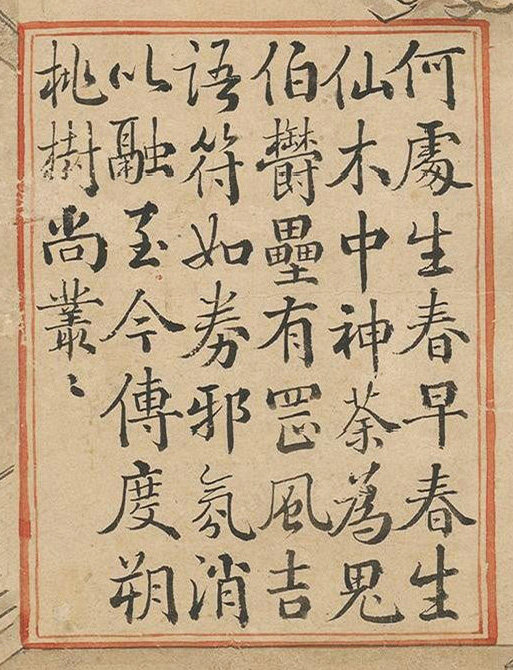 何處生春早春生
仙木中神荼為鬼
伯欝壘有罡風吉
語符如劵邪氛消
以融至今傳度朔
桃樹尚叢〻